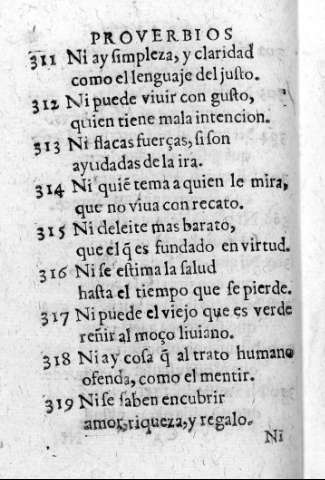 PROVERBIOS
311 Ni ay simpleza, y claridad
como el lenguaje del justo.
312 Ni puede viuir con gusto,
quien tiene mala intencion.
313 Ni flacas fuerças, si son
ayudadas de la ira.
314 Ni quiẽ tema a quien le mira,
que no viua con recato.
315 Ni deleite mas barato,
que el q̃ es fundado en virtud.
316 Ni se estima la salud
hasta el tiempo que se pierde.
317 Ni puede el viejo que es verde
reñir al moço liuiano.
318 Ni ay cosa q̃ al trato humano
ofenda, como el mentir.
319 Ni se saben encubrir
amor, riqueza, y regalo.
Ni